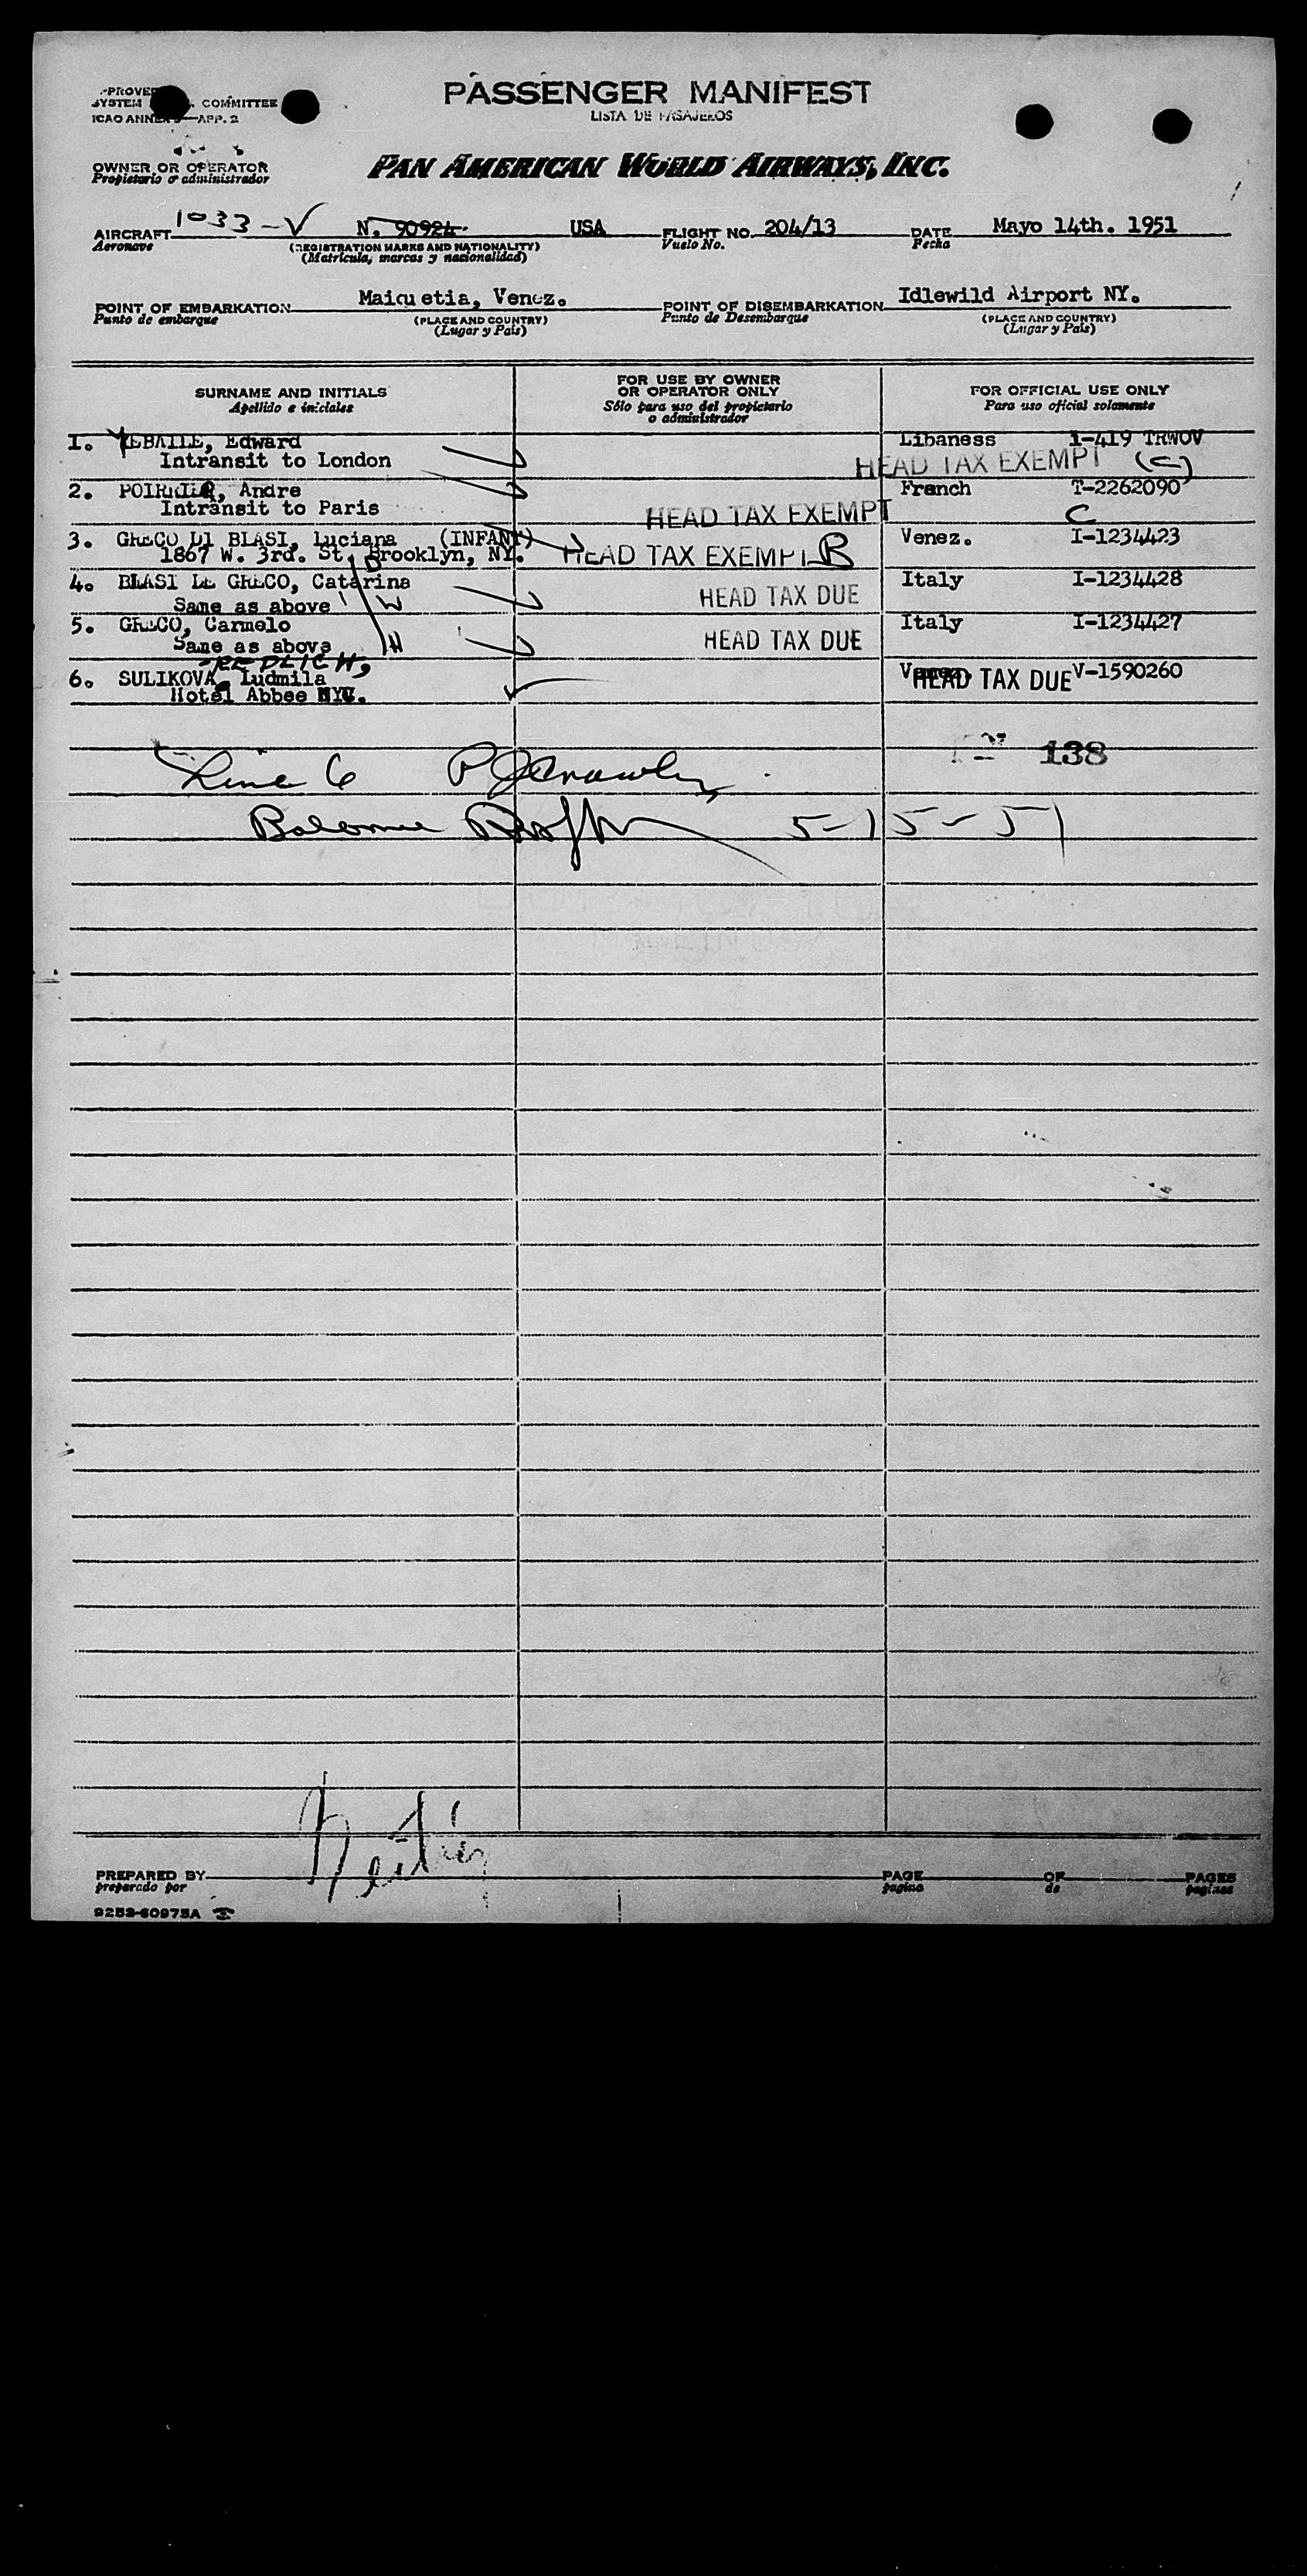 PASSENGER MANIFEST
LISTA DE PASAJEROS
COMMITTEE
ICAO ANNEX APP. 2
OWNER OR OPERATOR
Propietario o administrador
PAN AMERICAN WORLD AIRWAYS, INC.
AIRCRAFT 1033-V N. 90924 USA FLIGHT NO. 204/13 DATE Mayo 14th. 1951
Aeronave (REGISTRATION MARKS AND NATIONALITY) Vuelo No. Fecha
(Matrícula, marcas y nacionalidad)
POINT OF EMBARKATION Maiquetia, Venez. POINT OF DISEMBARKATION Idlewild Airport NY.
Punto de embarque (PLACE AND COUNTRY) Punto de Desembarque (PLACE AND COUNTRY)
(Lugar y País) (Lugar y País)
SURNAME AND INITIALS
Apellido e iniciales
FOR USE BY OWNER
OR OPERATOR ONLY
Sólo para uso del propietario
o administrador
FOR OFFICIAL USE ONLY
Para uso oficial solamente
1. YEBAILE, Edward Libaness 1-419 TRWOV
Intransit to London HEAD TAX EXEMPT (C)
2. POIRIER, Andre French T-2262090
Intransit to Paris HEAD TAX EXEMPT C
3. GRECO DI BLASI, Luciana (INFANT) Venez. I-1234423
1867 W. 3rd. St. Brooklyn, NY. HEAD TAX EXEMPT B
4. BLASI DE GRECO, Catarina Italy I-1234428
Same as above W HEAD TAX DUE
5. GRECO, Carmelo Italy I-1234427
Same as above H HEAD TAX DUE
REDLICH,
6. SULIKOVA, Ludmila HEAD TAX DUE V-1590260
Hotel Abbee NYC.
138
Line 6
5-15-51
PREPARED BY PAGE OF PAGES
preparado por pagina de paginas
9253-60975A